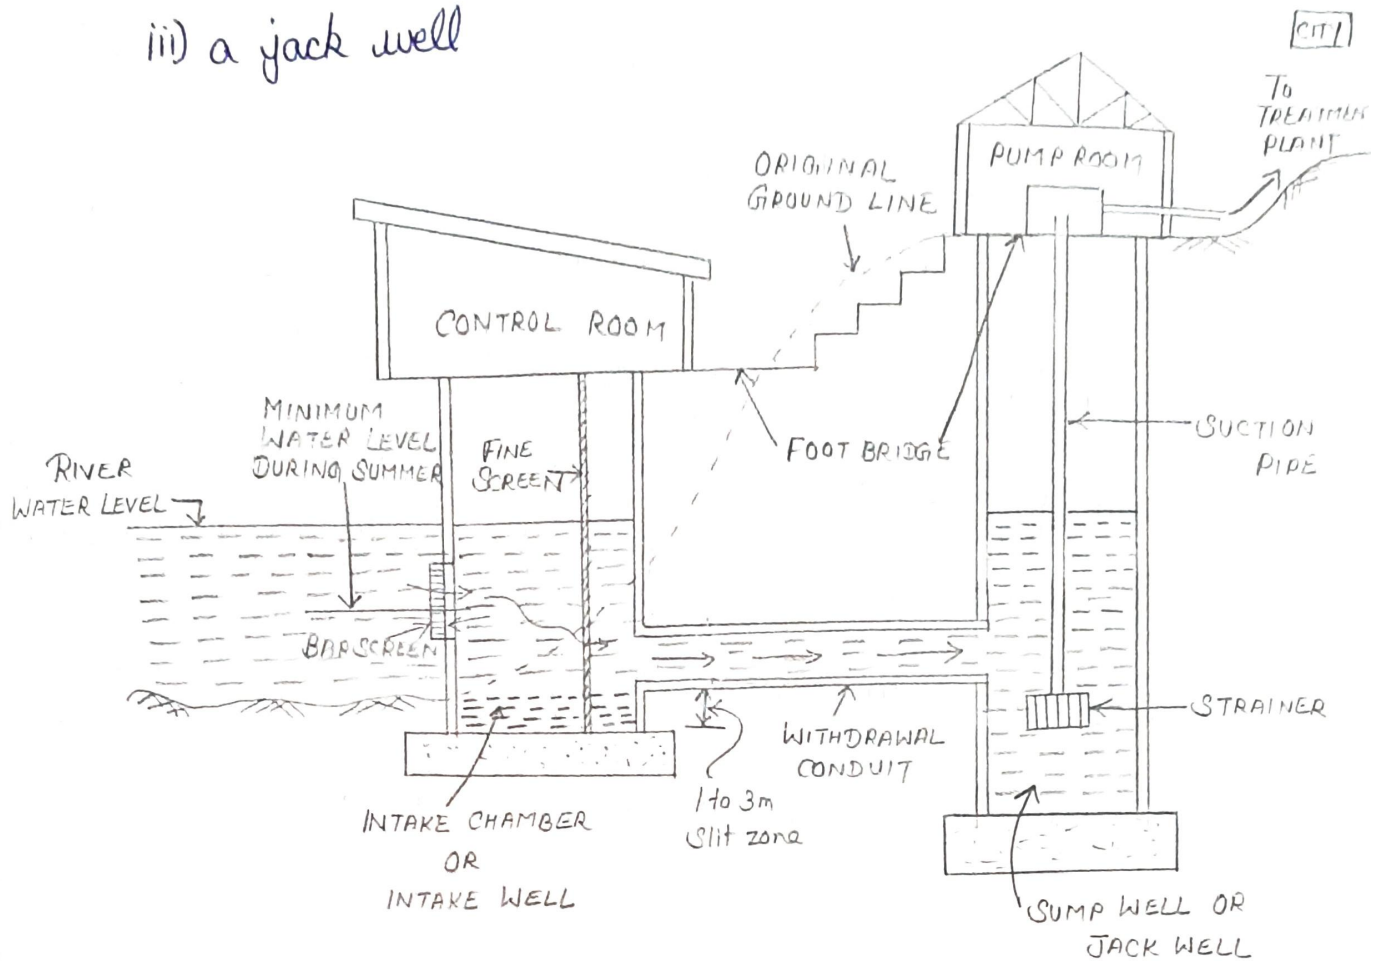 iii) a jack well
CITY
To
TREATMEN
PLANT
PUMP ROOM
ORIGINAL
GROUND LINE
CONTROL ROOM
MINIMUM
WATER LEVEL
DURING SUMMER
FINE
SCREEN
RIVER
WATER LEVEL
FOOT BRIDGE
SUCTION
PIPE
BARSCREEN
STRAINER
WITHDRAWAL
CONDUIT
1 to 3m
Slit zone
INTAKE CHAMBER
OR
INTAKE WELL
SUMP WELL OR
JACK WELL